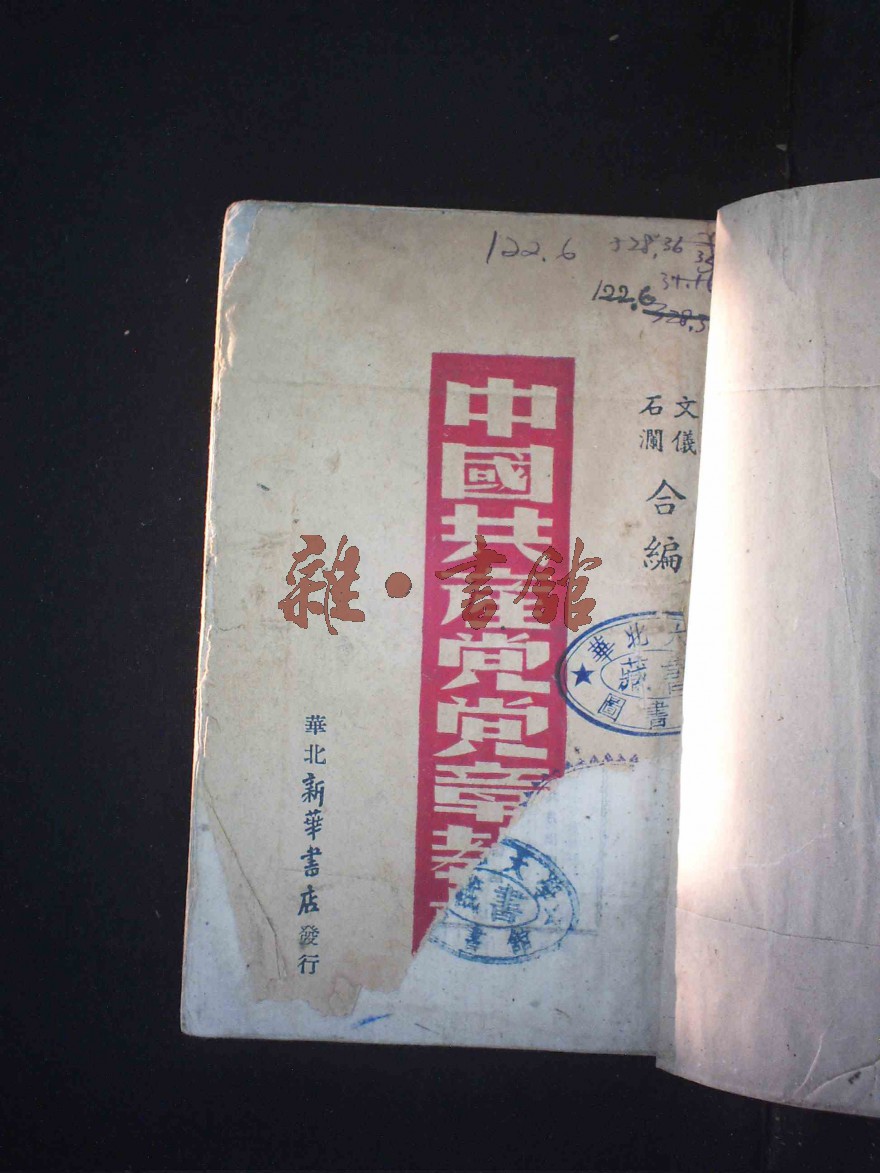 122.6
328.36
122.6
文儀
石瀾
合編
中國共產党党章教
華北新華書店發行
雜·書館
華北大
藏書
圖書